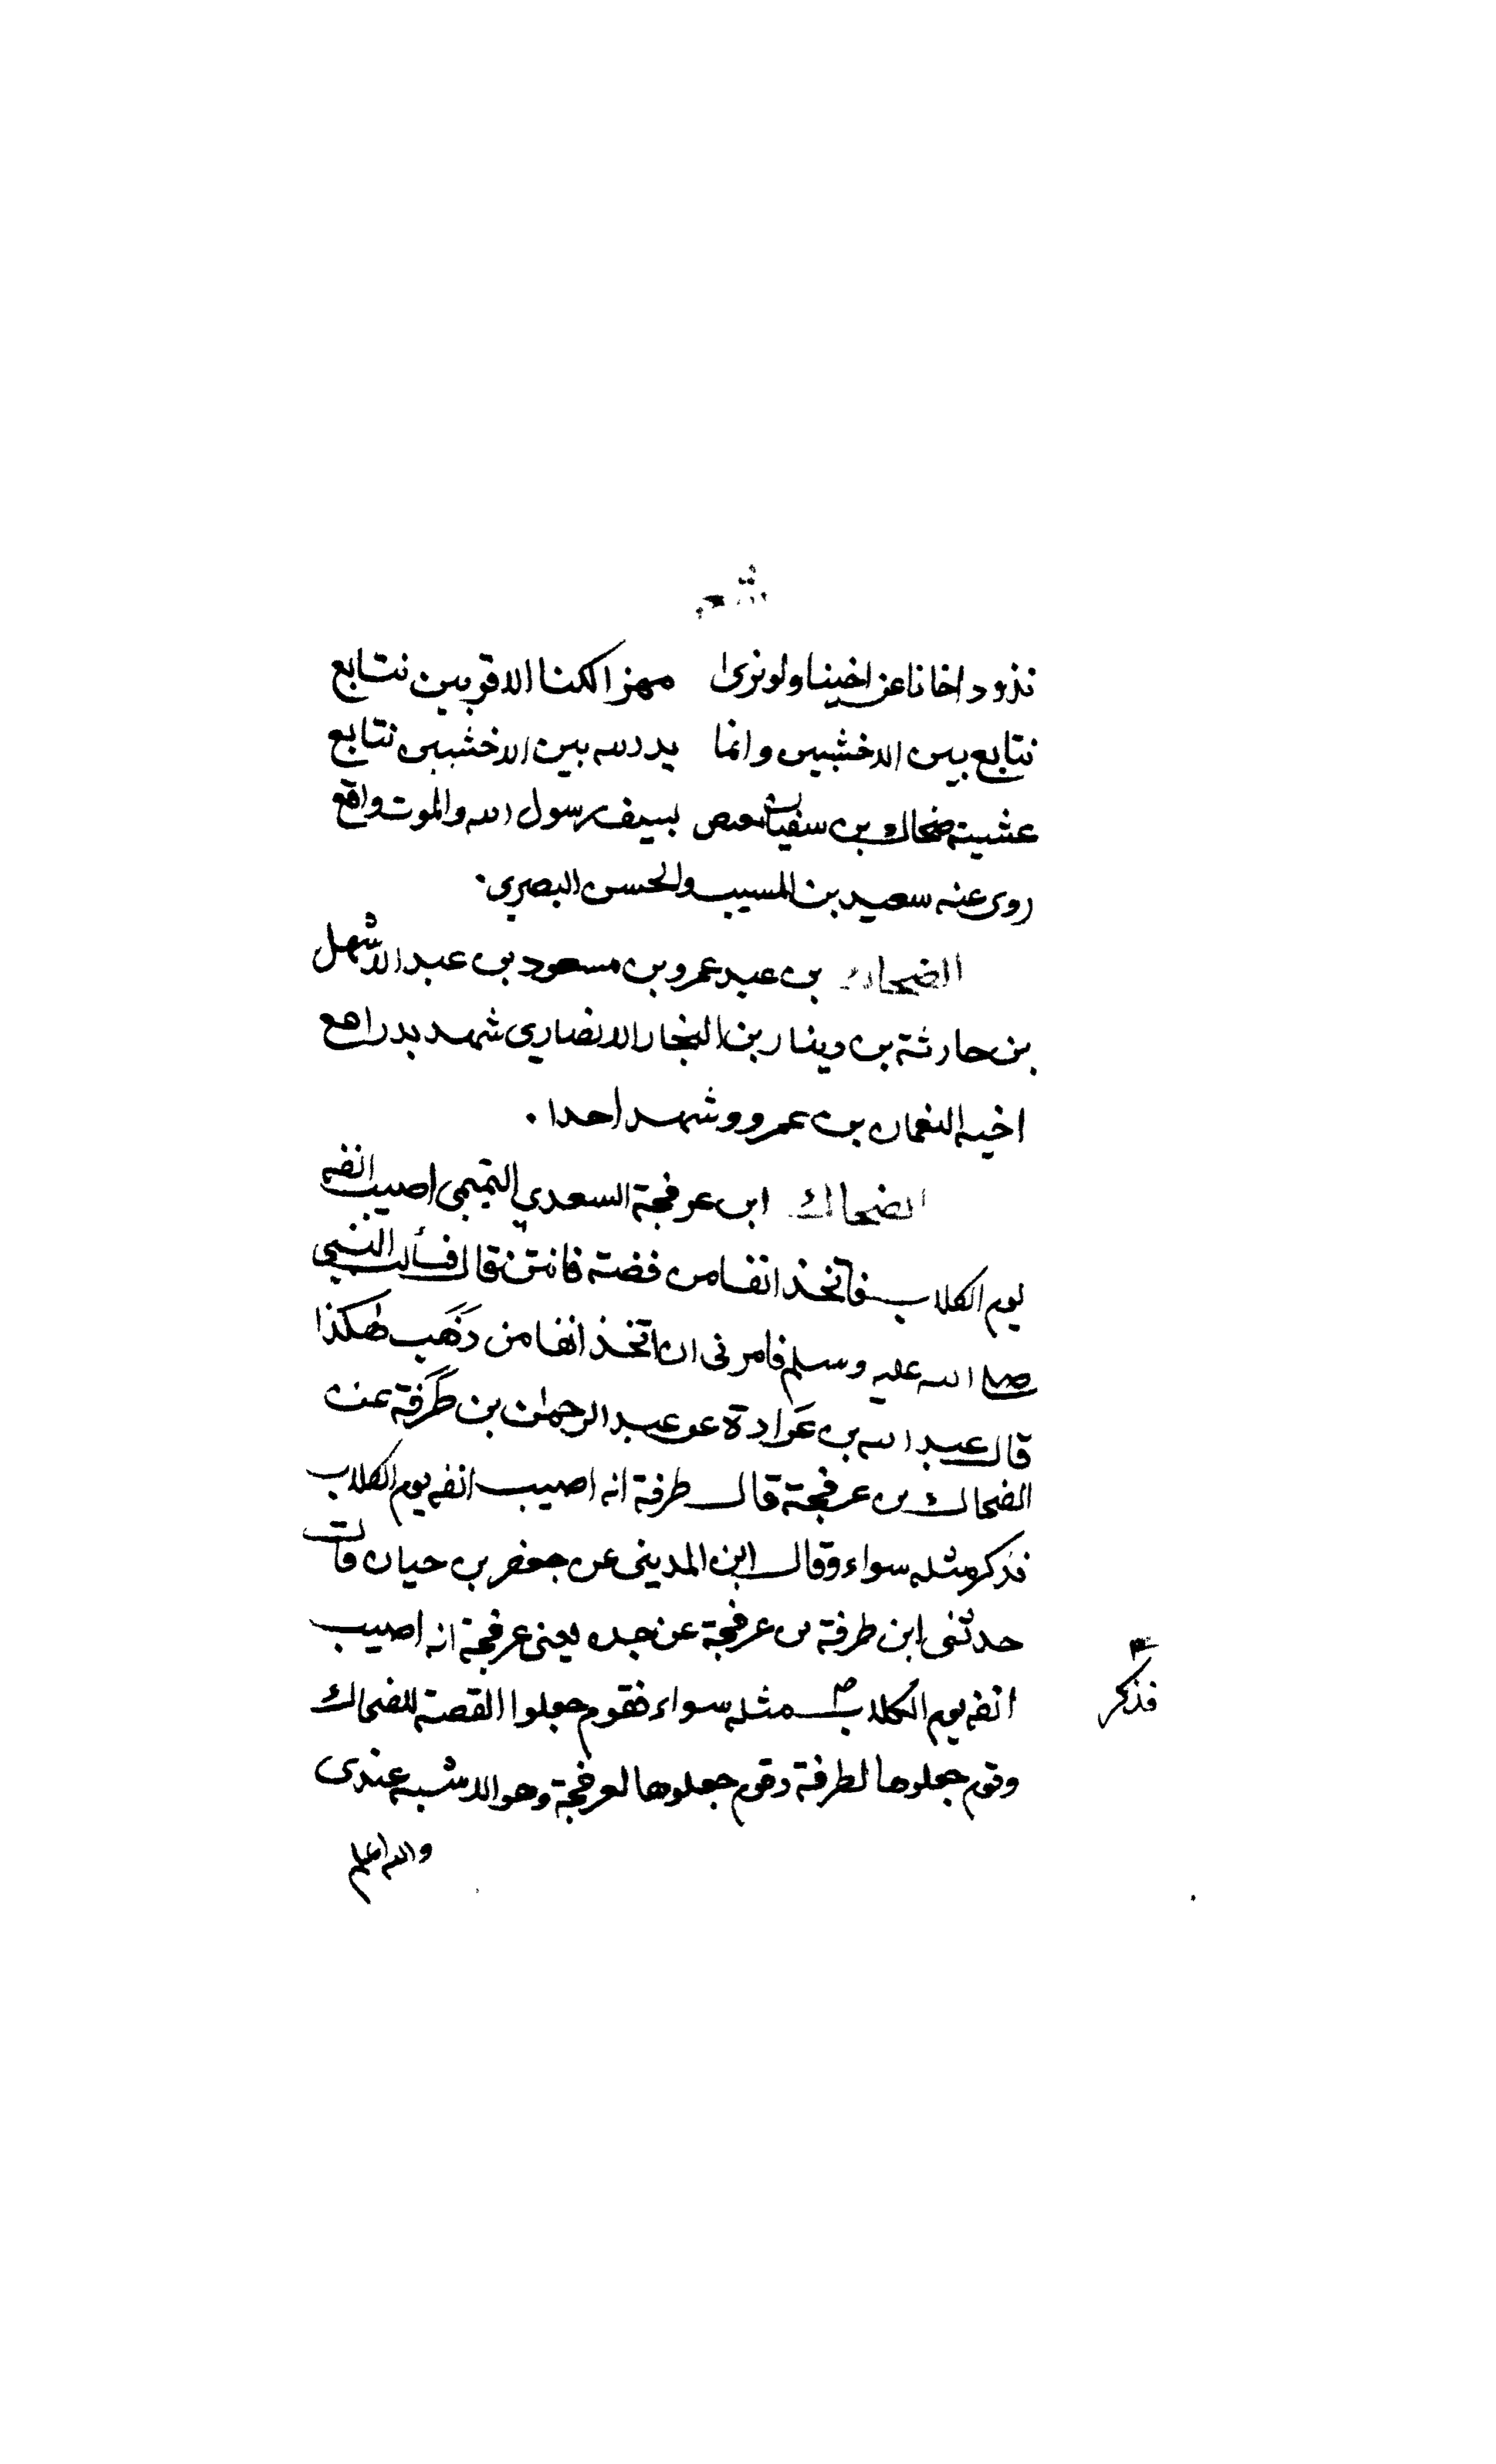 شعر
نذود اخانا عن اخينا ولو نرى مهزا لكنا الاقربين نتابع
نتابع بين الاخشبين وانما يد الله بين الاخشبين نتابع
عشية ضحاك بن سفيان معتص بسيف رسول الله والموت واقع
روى عنه سعيد بن المسيب والحسن البصري.
الضحاك بن عبد عمرو بن مسعود بن عبد الاشهل
بن حارثة بن دينار بن النجار الانصاري شهد بدرا مع
اخيه النعمان بن عمرو وشهد احدا .
الضحاك ابن عرفجة السعدي التميمي اصيب انفه
يوم الكلاب فاتخذ انفا من فضة فانتن قال فسألت النبي
صلى الله عليه وسلم فامرنى ان اتخذ انفا من ذَهَب هٰكذا
قال عبد الله بن عَرادة عن عبد الرحمٰن بن طَرَفة عن
الضحاك بن عرفجة قال طرفة انه اصيب انفه يوم الكلاب
فذكر مثله سواء وقال ابن المدينى عن جعفر بن حيان قال
حدثنى ابن طرفة بن عرفجة عن جده يعنى عرفجة انه اصيب
انفه يوم الكلاب مثله سواء فقوم جعلوا القصة للضحاك
فذكر
وقوم جعلوها لطرفة وقوم جعلوها لعرفجة وهو الاشبه عندى
والله اعلم